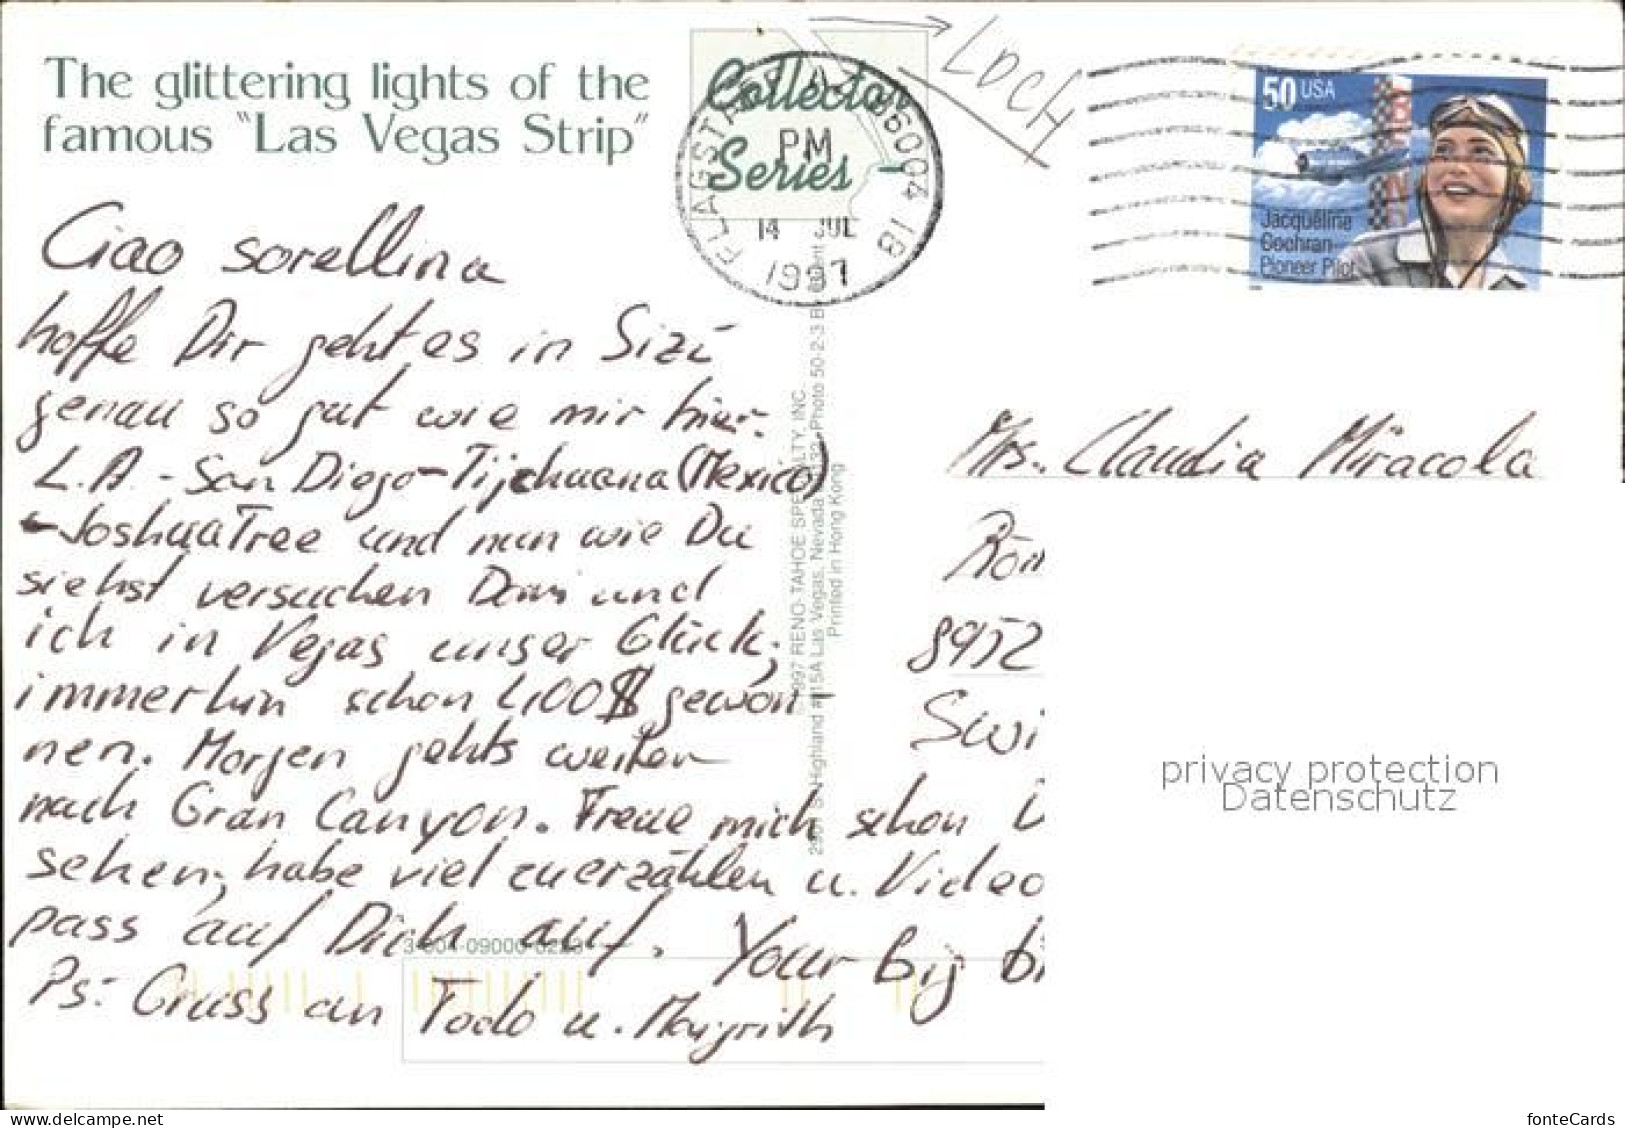 The glittering lights of the
famous "Las Vegas Strip"
Collector
Series
FLAGSTAFF AZ 86004 18
PM
14 JUL
1997
LOCH
50 USA
Jacqueline
Cochran
Pioneer Pilot
Ciao sorellina
hoffe Dir geht es in Sizi
genau so gut wie mir hier.
L.A. - San Diego - Tijchuana (Mexico)
- Joshua Tree und nun wie Du
siehst versuchen Domi und
ich in Vegas unser Glück,
immerhin schon 400$ gewon-
nen. Morgen gehts weiter
nach Gran Canyon. Freue mich schon
sehen, habe viel zu erzählen u. Video
pass auf Dich auf. Your big
Ps: Gruss an Todo u.
© 1997 RENO-TAHOE SPECIALTY, INC.
Highland #115A Las Vegas, Nevada Photo 50-2-3 By
Printed in Hong Kong
Mrs. Claudia Miracola
8952
Swi
privacy protection
Datenschutz
delcampe.net
fonteCards